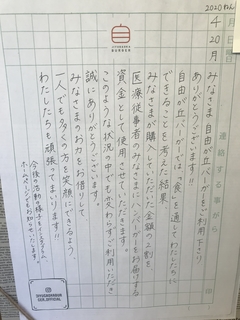 2020ねん
4月20日
JIYUGAOKA BURGER
連絡する事がら
みなさま 自由が丘バーガーをご利用下さり
ありがとうございます!!
自由が丘バーガーでは“食”を通してわたしたちに
できることを考えた結果
みなさまが購入していただいた金額の2割を
医療従事者のみなさまにハンバーガーをお届けする
資金として使用させていただきます。
このような状況の中でもかわらずご利用いただき
誠にありがとうございます。
みなさまのお力をお借りして
一人でも多くの方を笑顔にできるよう
わたしたちも頑張ってまいります!!
今後の活動の様子をインスタグラム、
ホームページでもお知らせいたします。
JIYUGAOKABURGER_OFFICIAL